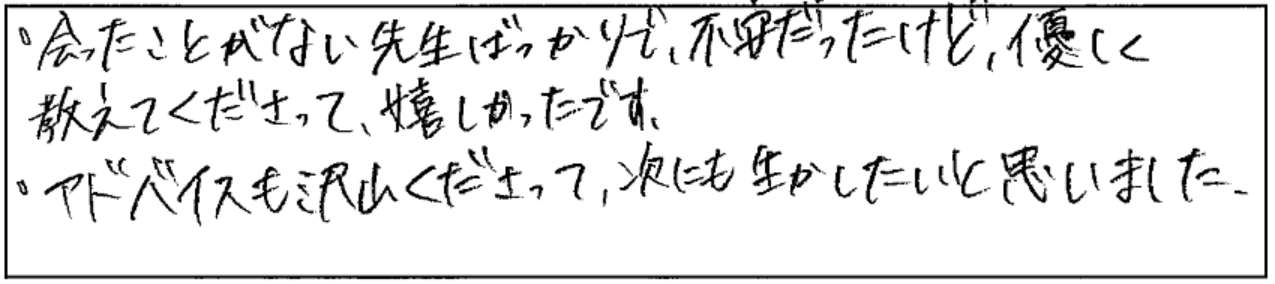 ・会ったことがない先生ばっかりで、不安だったけど、優しく
教えてくださって、嬉しかったです。
・アドバイスも沢山くださって、次にも生かしたいと思いました。